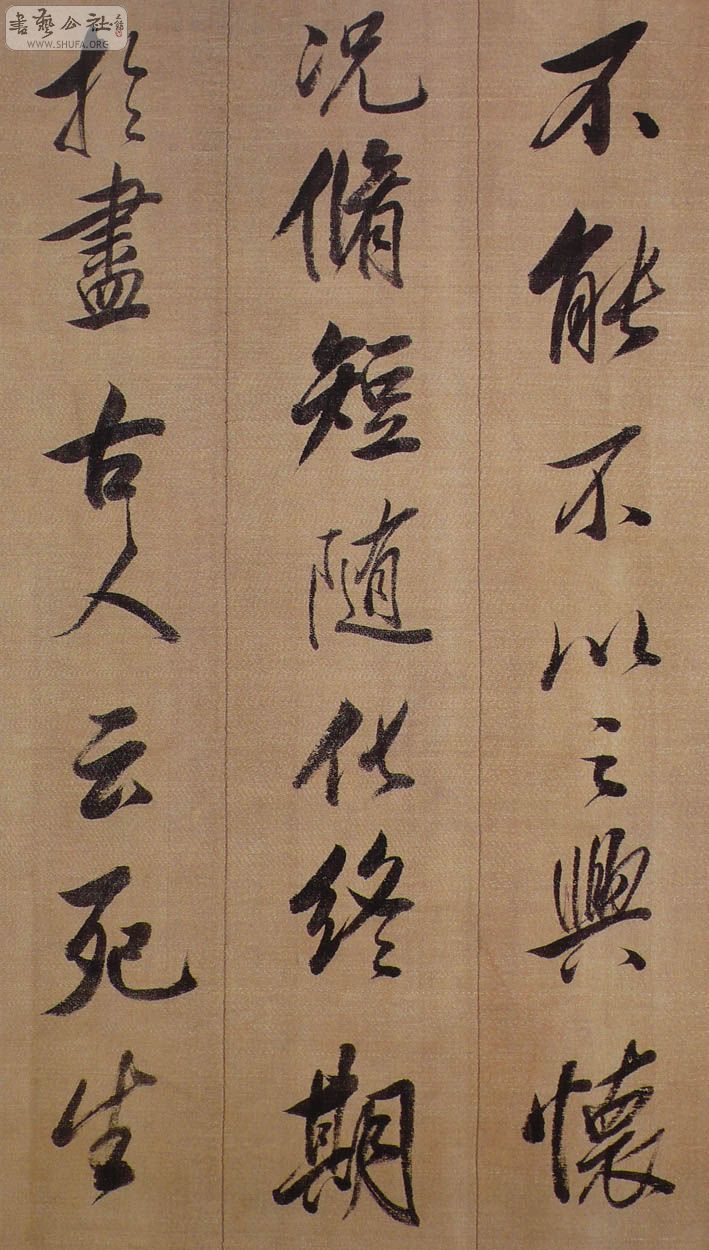 不能不以之興懷
况脩短随化終期
於盡古人云死生
書藝公社
WWW.SHUFA.ORG